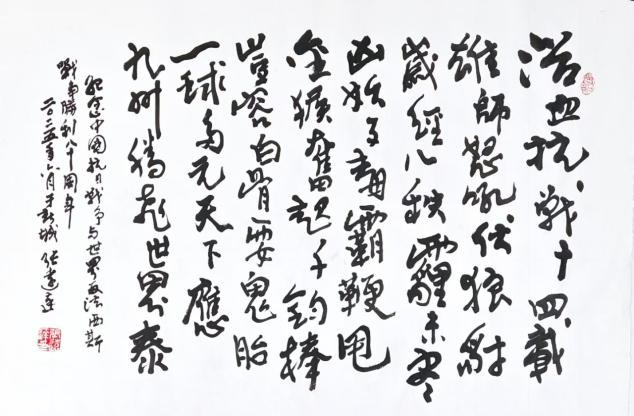 浴血抗戰十四載
雄師怒吼伏狼豺
歲經八秩霾未盡
霸鞭甩
金猴奮起千鈞棒
豈容白骨耍鬼胎
一球多元天下應
九州騰世界泰
紀念中國抗日戰争与世界反法西斯
戰争勝利八十周年
二〇二五年八月于城張建